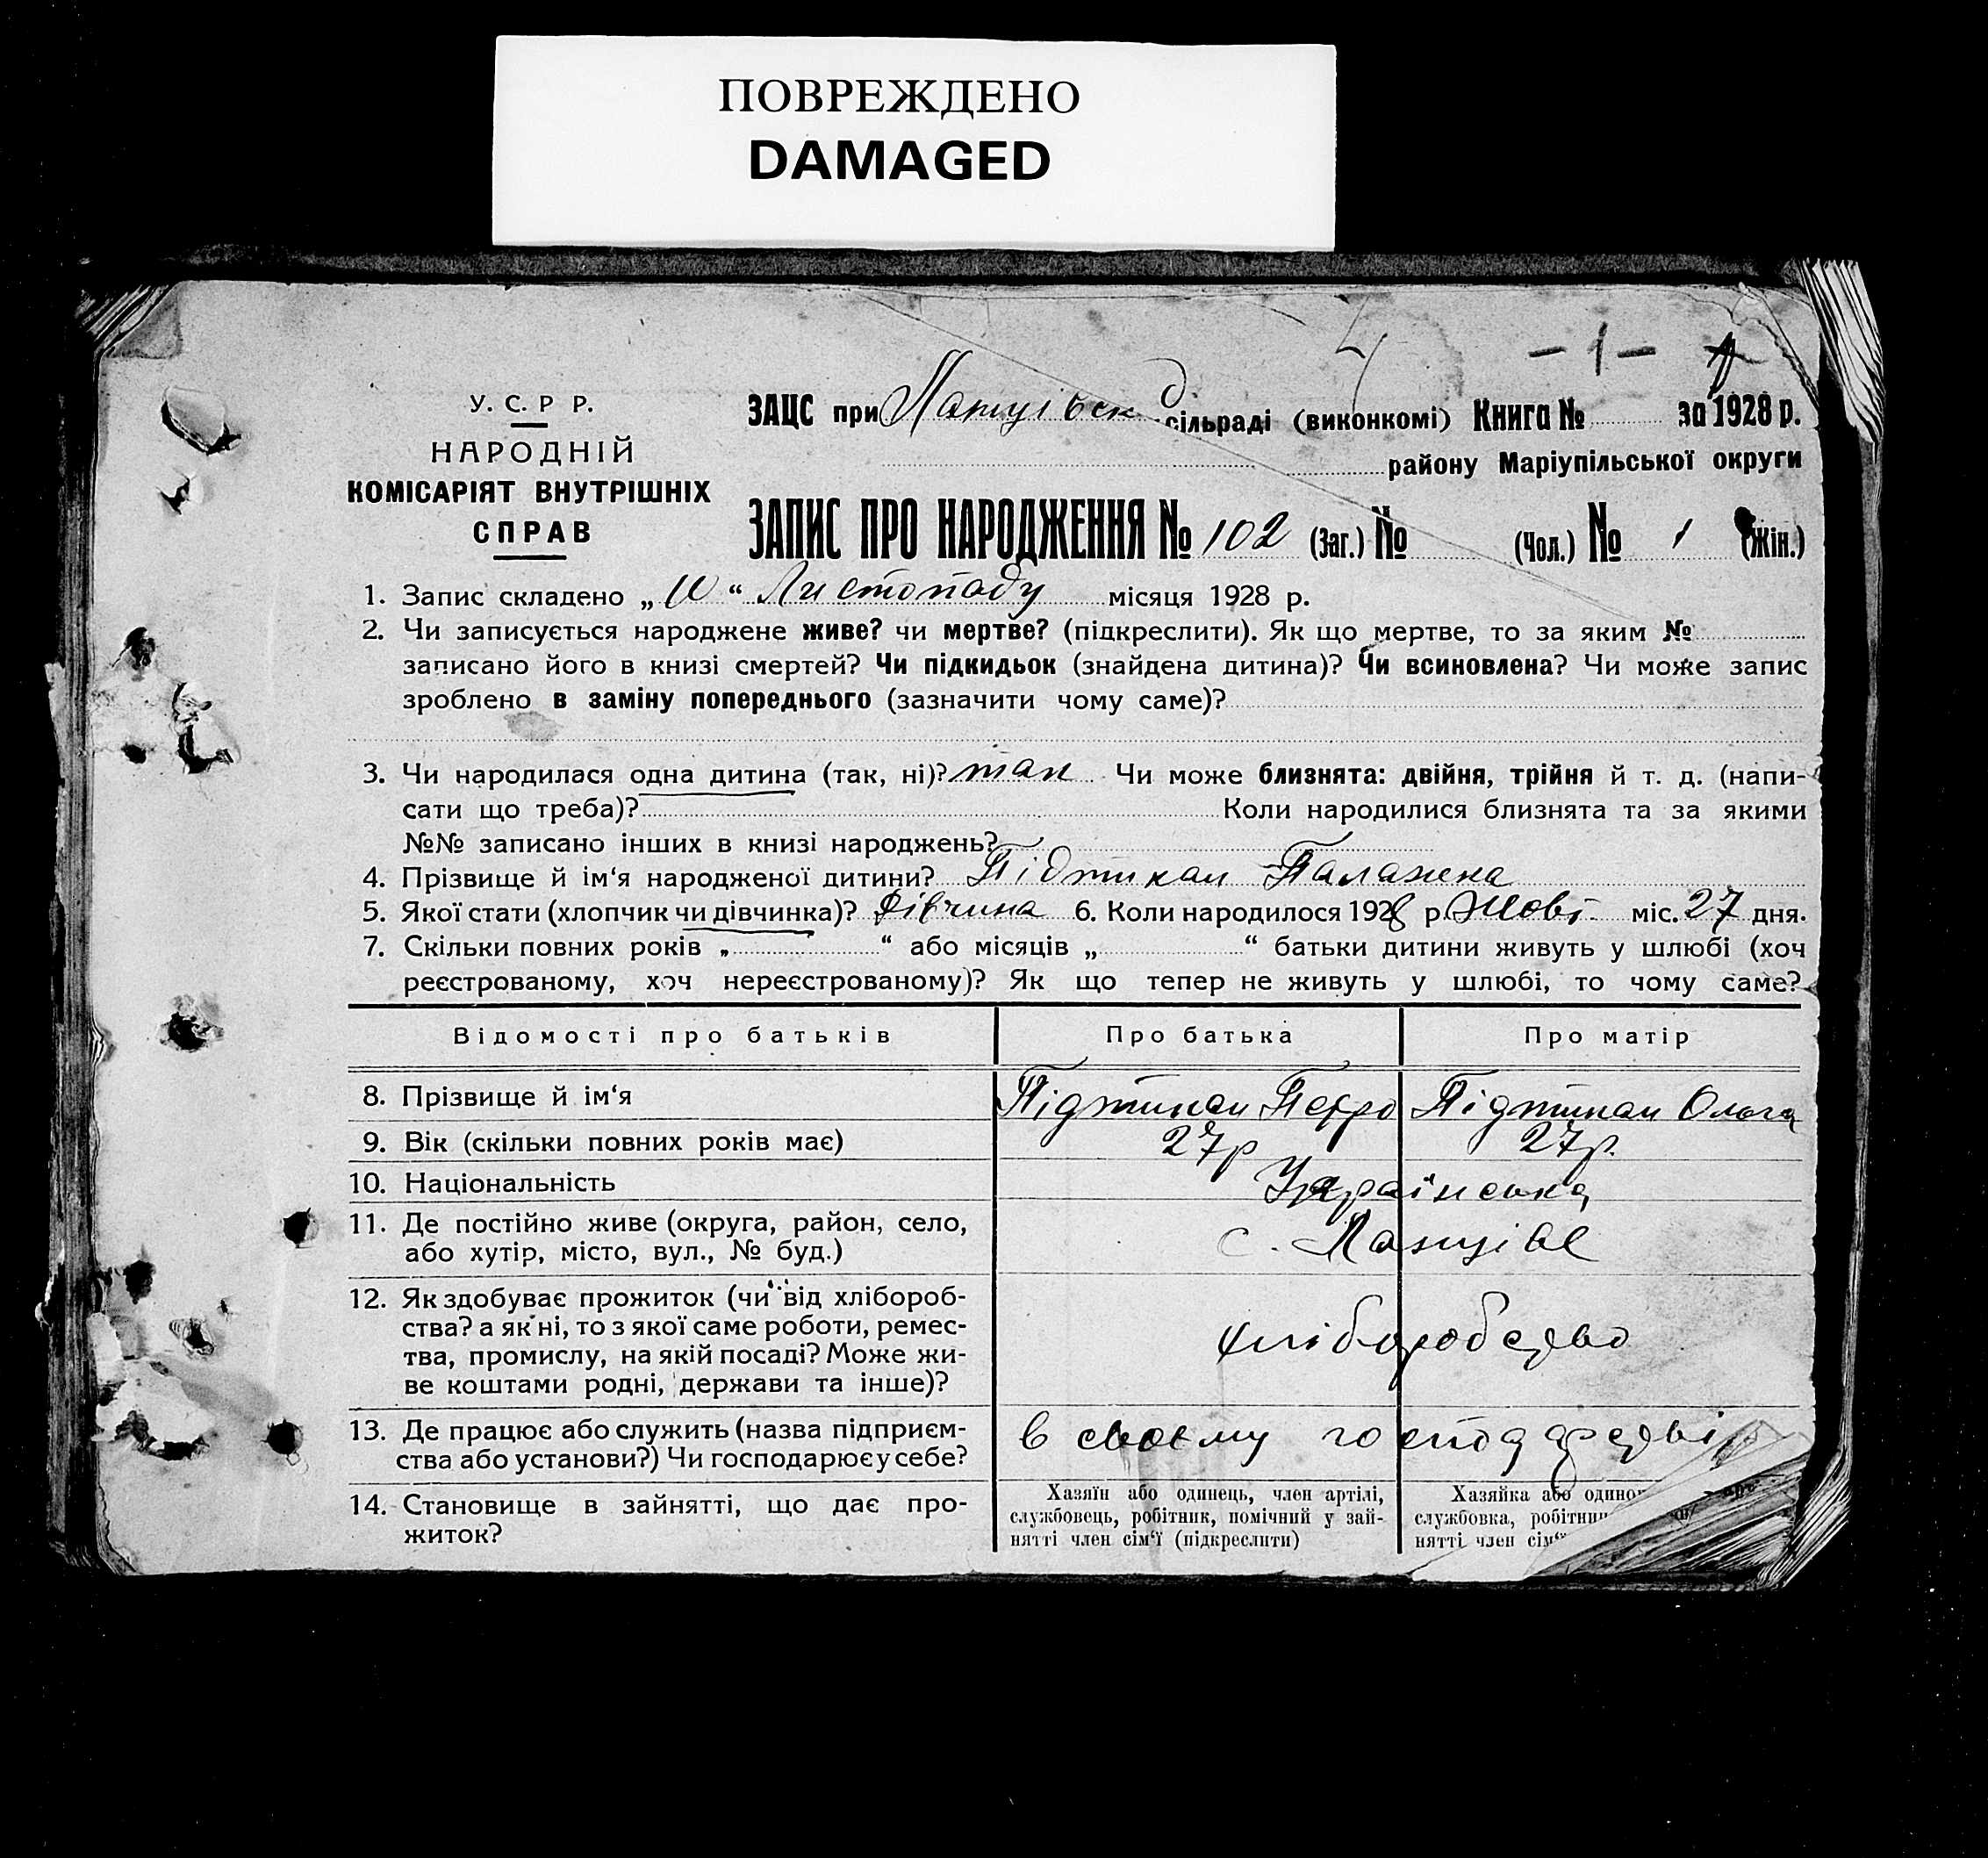 ПОВРЕЖДЕНО
DAMAGED
4 -1-
У. С. Р Р.
НАРОДНІЙ
КОМІСАРІЯТ ВНУТРІШНІХ
СПРАВ
ЗАЦС при сільраді (виконкомі) Книга № за 1928 р.
району Маріупільської округи
ЗАПИС ПРО НАРОДЖЕННЯ № 102 (Заг.) № (Чол.) № 1 (Жін.)
1. Запис складено „ 10 “ Листопаду місяця 1928 р.
2. Чи записується народжене живе? чи мертве? (підкреслити). Як що мертве, то за яким №
записано його в книзі смертей? Чи підкидьок (знайдена дитина)? Чи всиновлена? Чи може запис
зроблено в заміну попереднього (зазначити чому саме)?
3. Чи народилася одна дитина (так, ні)? так Чи може близнята: двійня, трійня й т. д. (напи-
сати що треба)? Коли народилися близнята та за якими
№№ записано інших в книзі народжень?
4. Прізвище й ім‘я народженої дитини? Палажка
5. Якої стати (хлопчик чи дівчинка)? Дівчина 6. Коли народилося 1928 р. Жовт. міс. 27 дня.
7. Скільки повних років „ “ або місяців „ “ батьки дитини живуть у шлюбі (хоч
реєстрованому, хоч нереєстрованому)? Як що тепер не живуть у шлюбі, то чому саме?
Відомості про батьків Про батька Про матір
8. Прізвище й ім‘я Петро Ольга
9. Вік (скільки повних років має) 27р 27р.
10. Національність Українська
11. Де постійно живе (округа, район, село,
або хутір, місто, вул., № буд.) с.
12. Як здобуває прожиток (чи від хлібороб-
ства? а як ні, то з якої саме роботи, ремес-
тва, промислу, на якій посаді? Може жи-
ве коштами родні, держави та інше)?
хліборобство
13. Де працює або служить (назва підприєм-
ства або установи?) Чи господарює у себе?
в своєму господарстві
14. Становище в зайнятті, що дає про-
житок?
Хазяїн або одинець, член артілі,
службовець, робітник, помічний у зай-
нятті член сім‘ї (підкреслити)
Хазяйка або
службовка,
нятті член